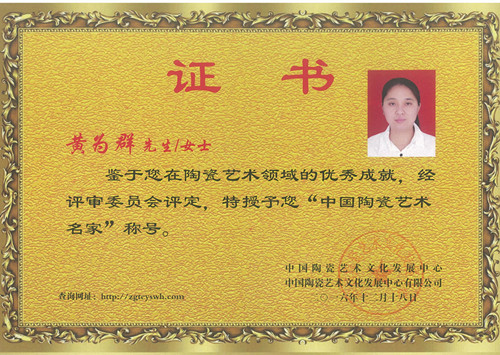 证书
黄为群先生/女士
鉴于您在陶瓷艺术领域的优秀成就，经
评审委员会评定，特授予您“中国陶瓷艺术
名家”称号。
中国陶瓷艺术文化发展中心
中国陶瓷艺术文化发展中心有限公司
查询网址：http://zgtcyswh.com
二〇一六年十二月十八日